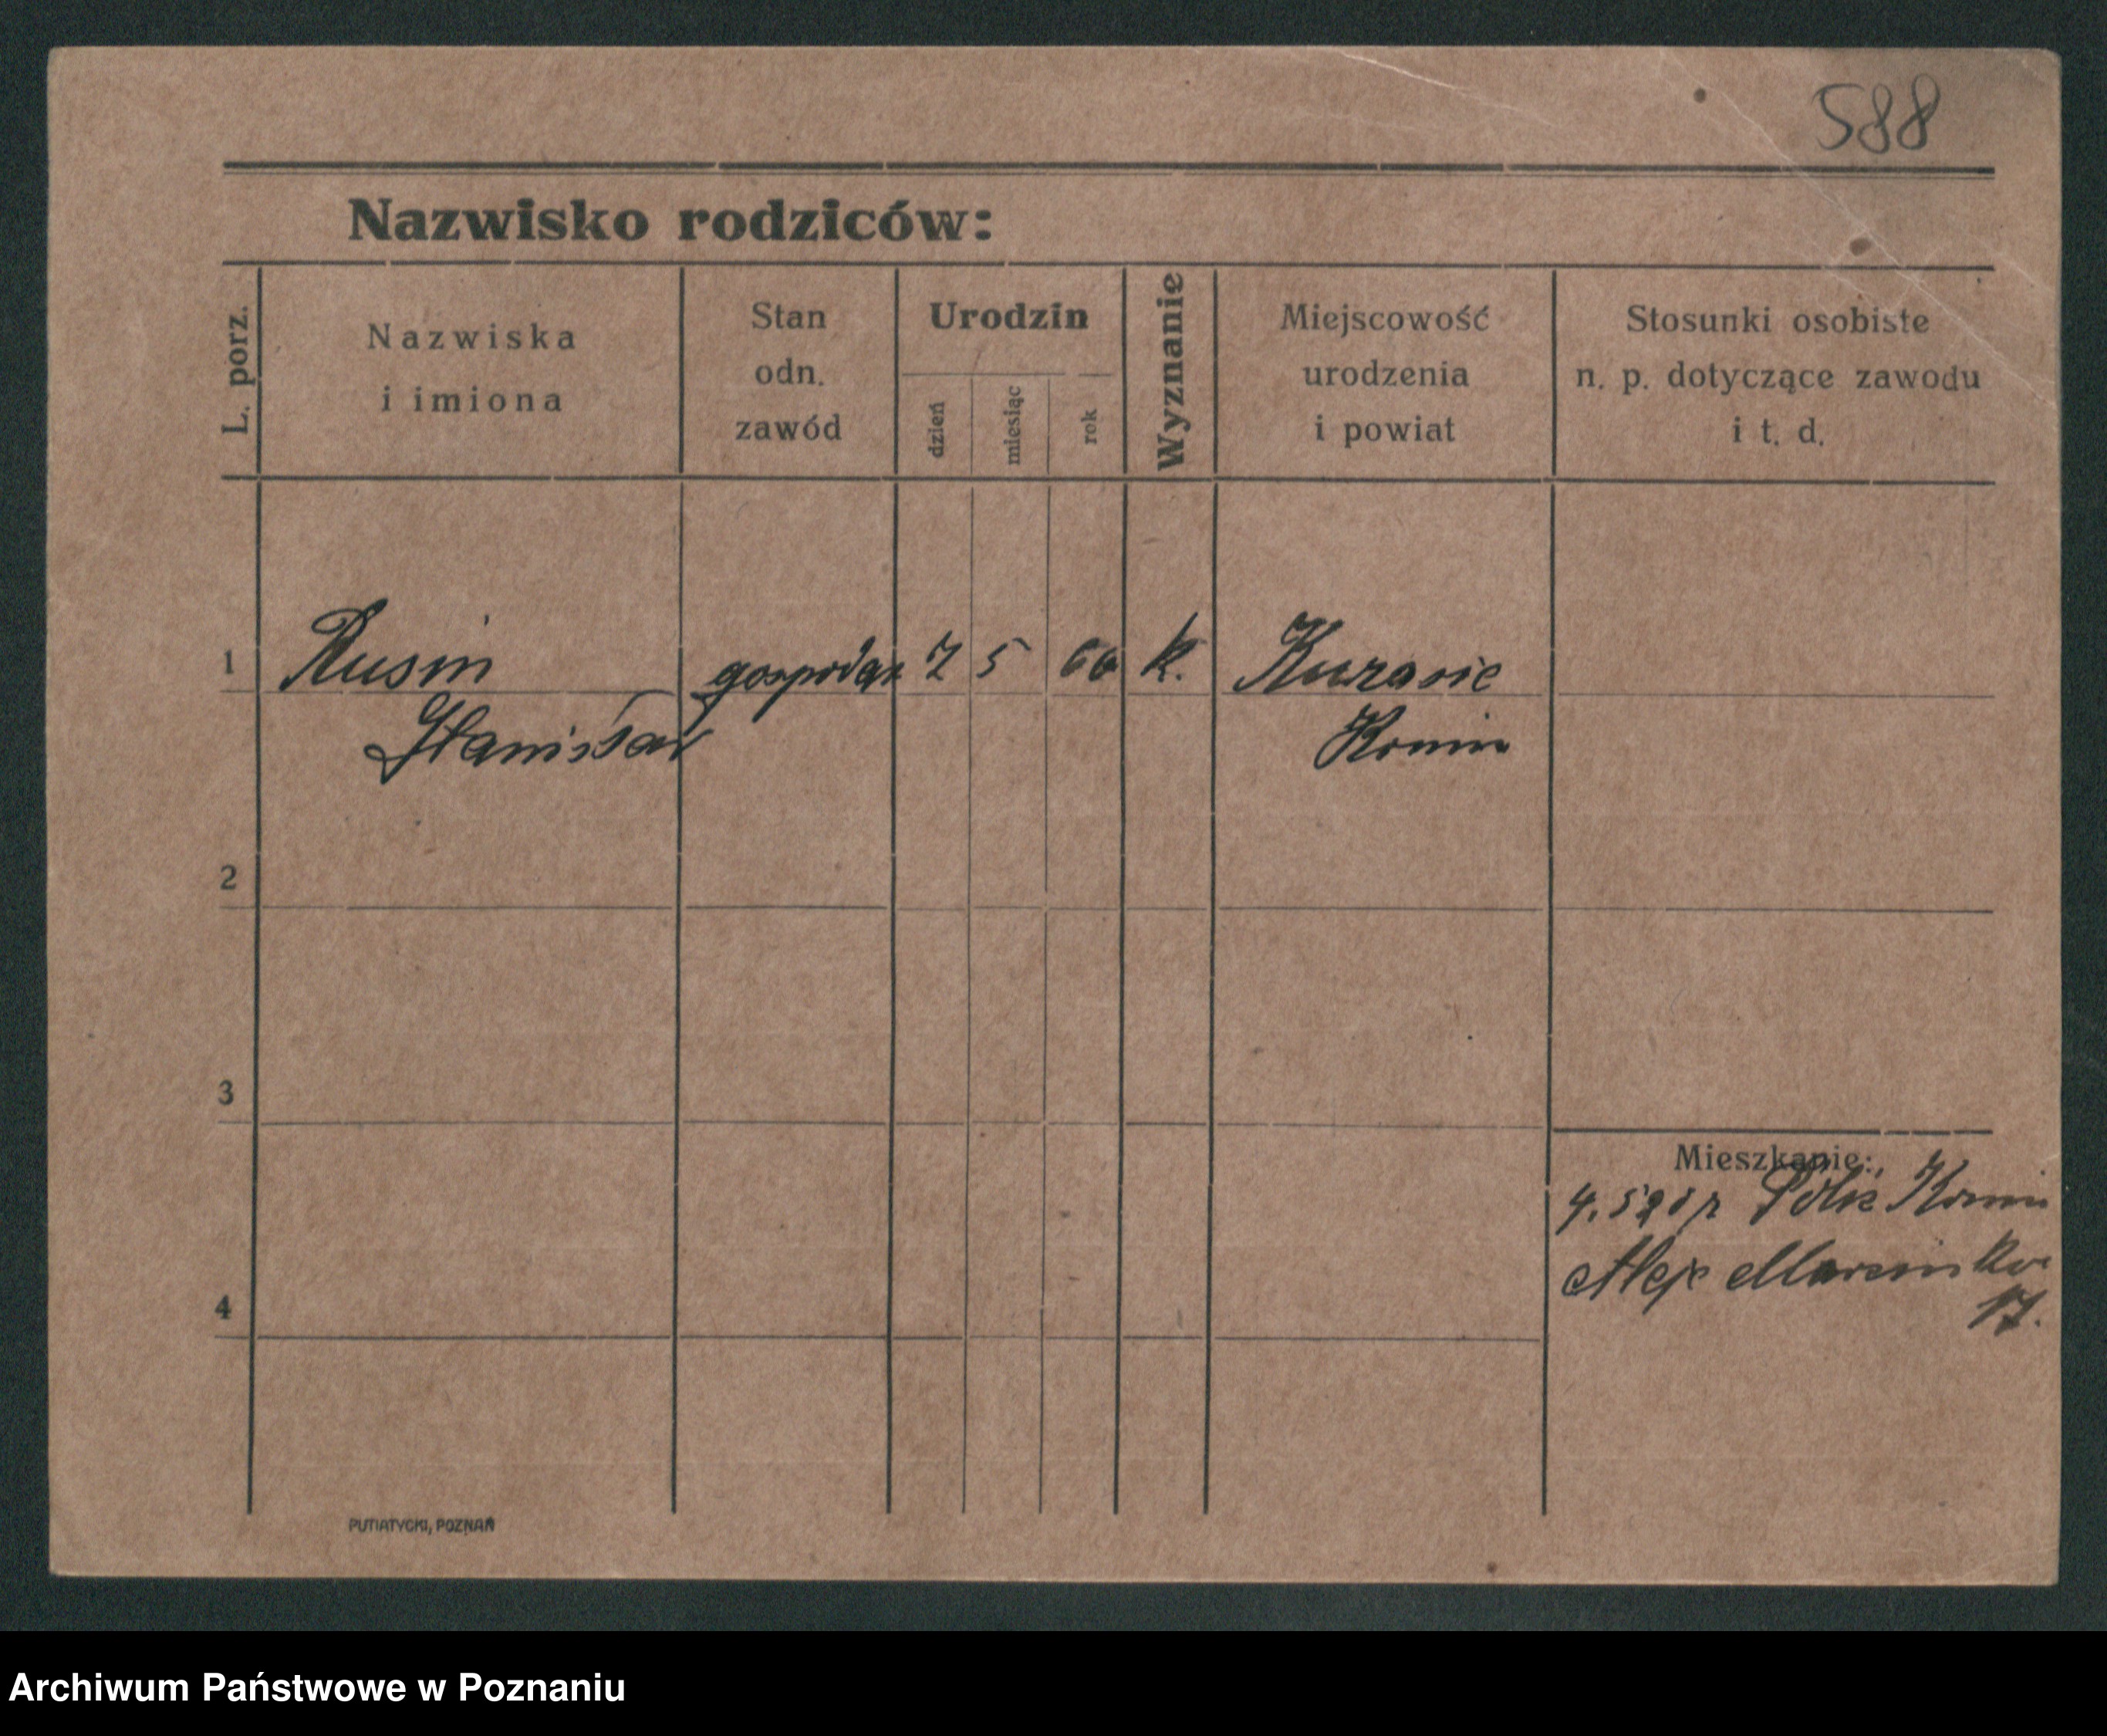 588
Nazwisko rodziców:
L. porz.
Nazwiska
i imiona
Stan
odn.
zawód
Urodzin
dzień
miesiąc
rok
Wyznanie
Miejscowość
urodzenia
i powiat
Stosunki osobiste
n. p. dotyczące zawodu
i t. d.
1 Rusin gospodarz 7 5 66 k.
Stanisław Konin
2
3
Mieszkanie:
Konin
Alej Marcinko
17.
4
PUTIATYCKI, POZNAŃ
Archiwum Państwowe w Poznaniu